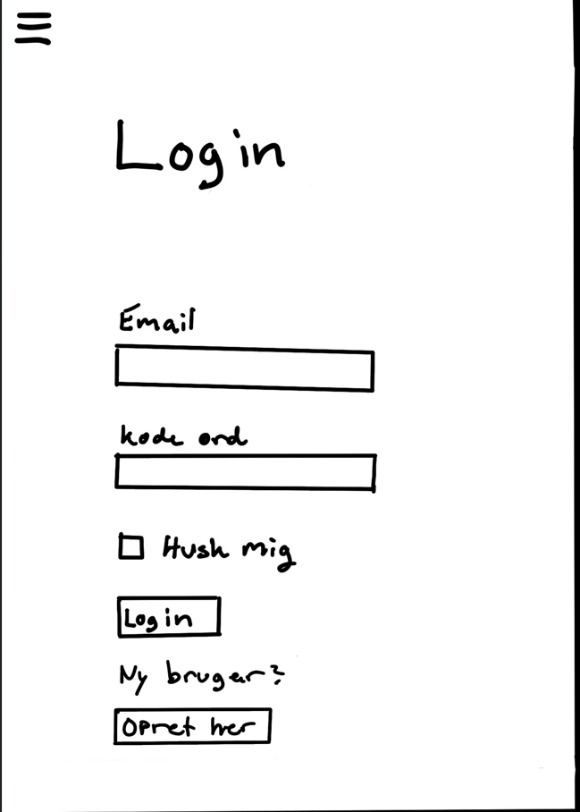 Login
Email
kode ord
Husk mig
Login
Ny bruger?
Opret her